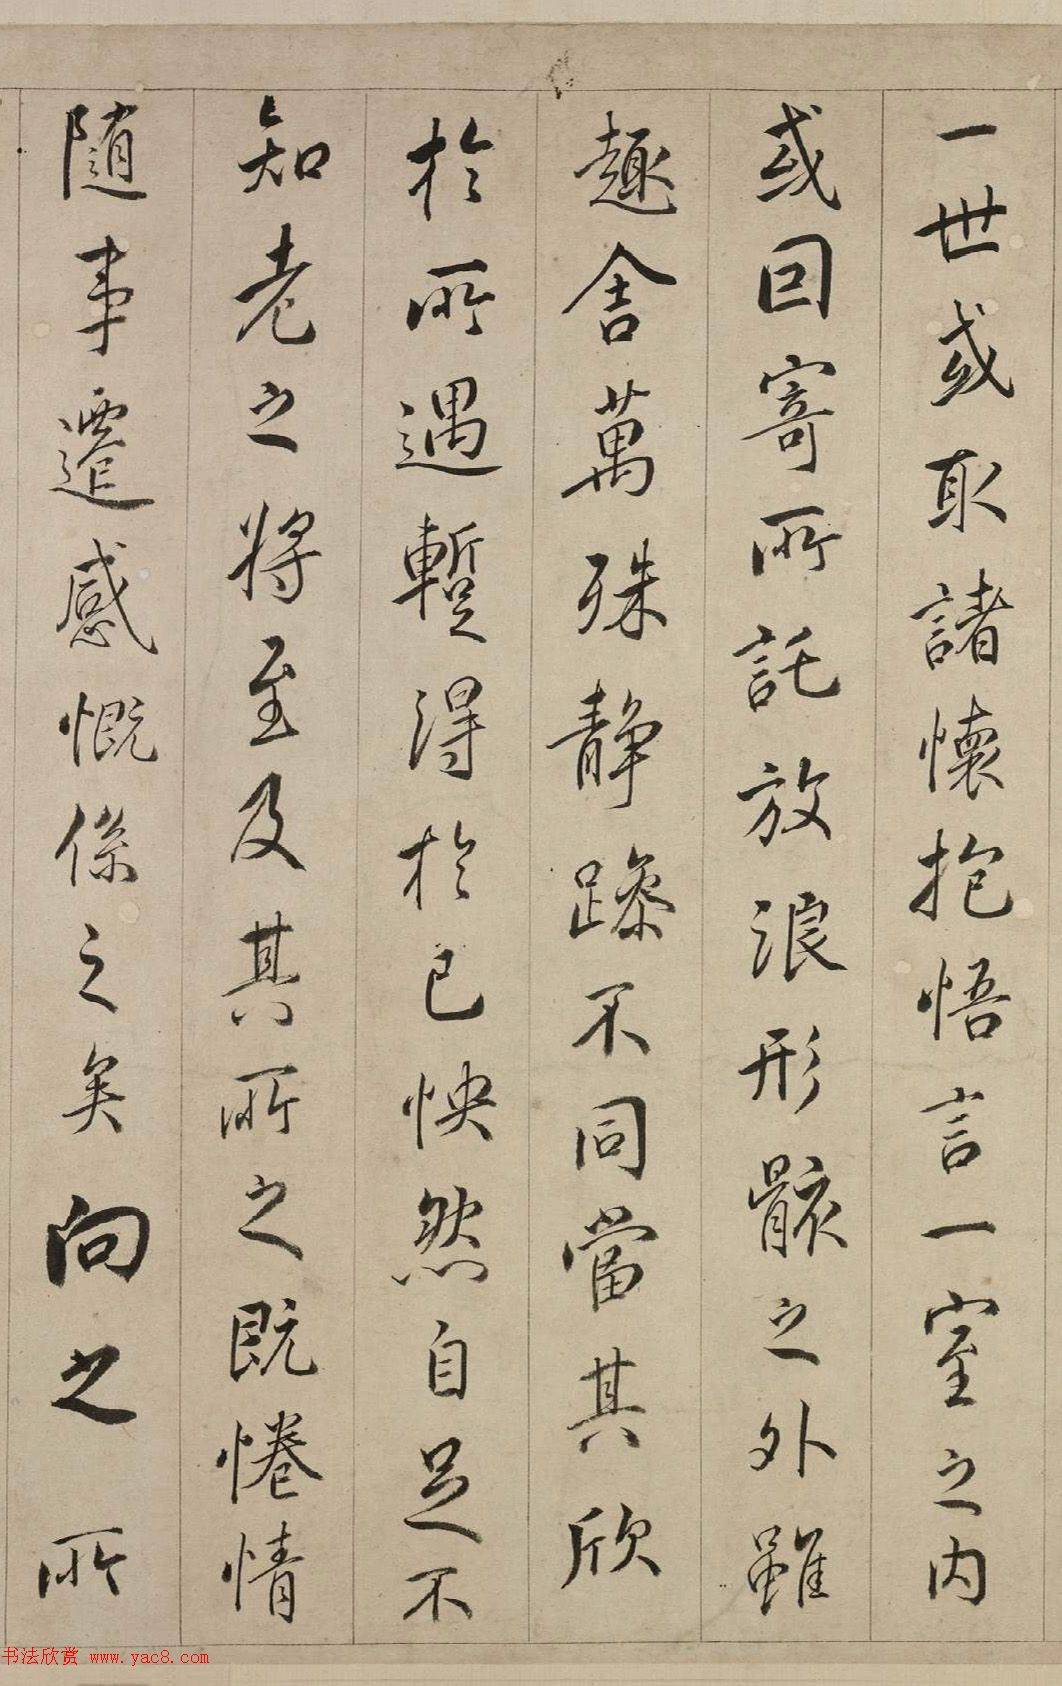 一世或取諸懷抱悟言一室之內
或回寄所託放浪形骸之外雖
趣舍萬殊靜躁不同當其欣
於所遇蹔得於己怏然自足不
知老之將至及其所之既惓情
隨事遷感慨係之矣向之所
书法欣赏 www.yac8.com